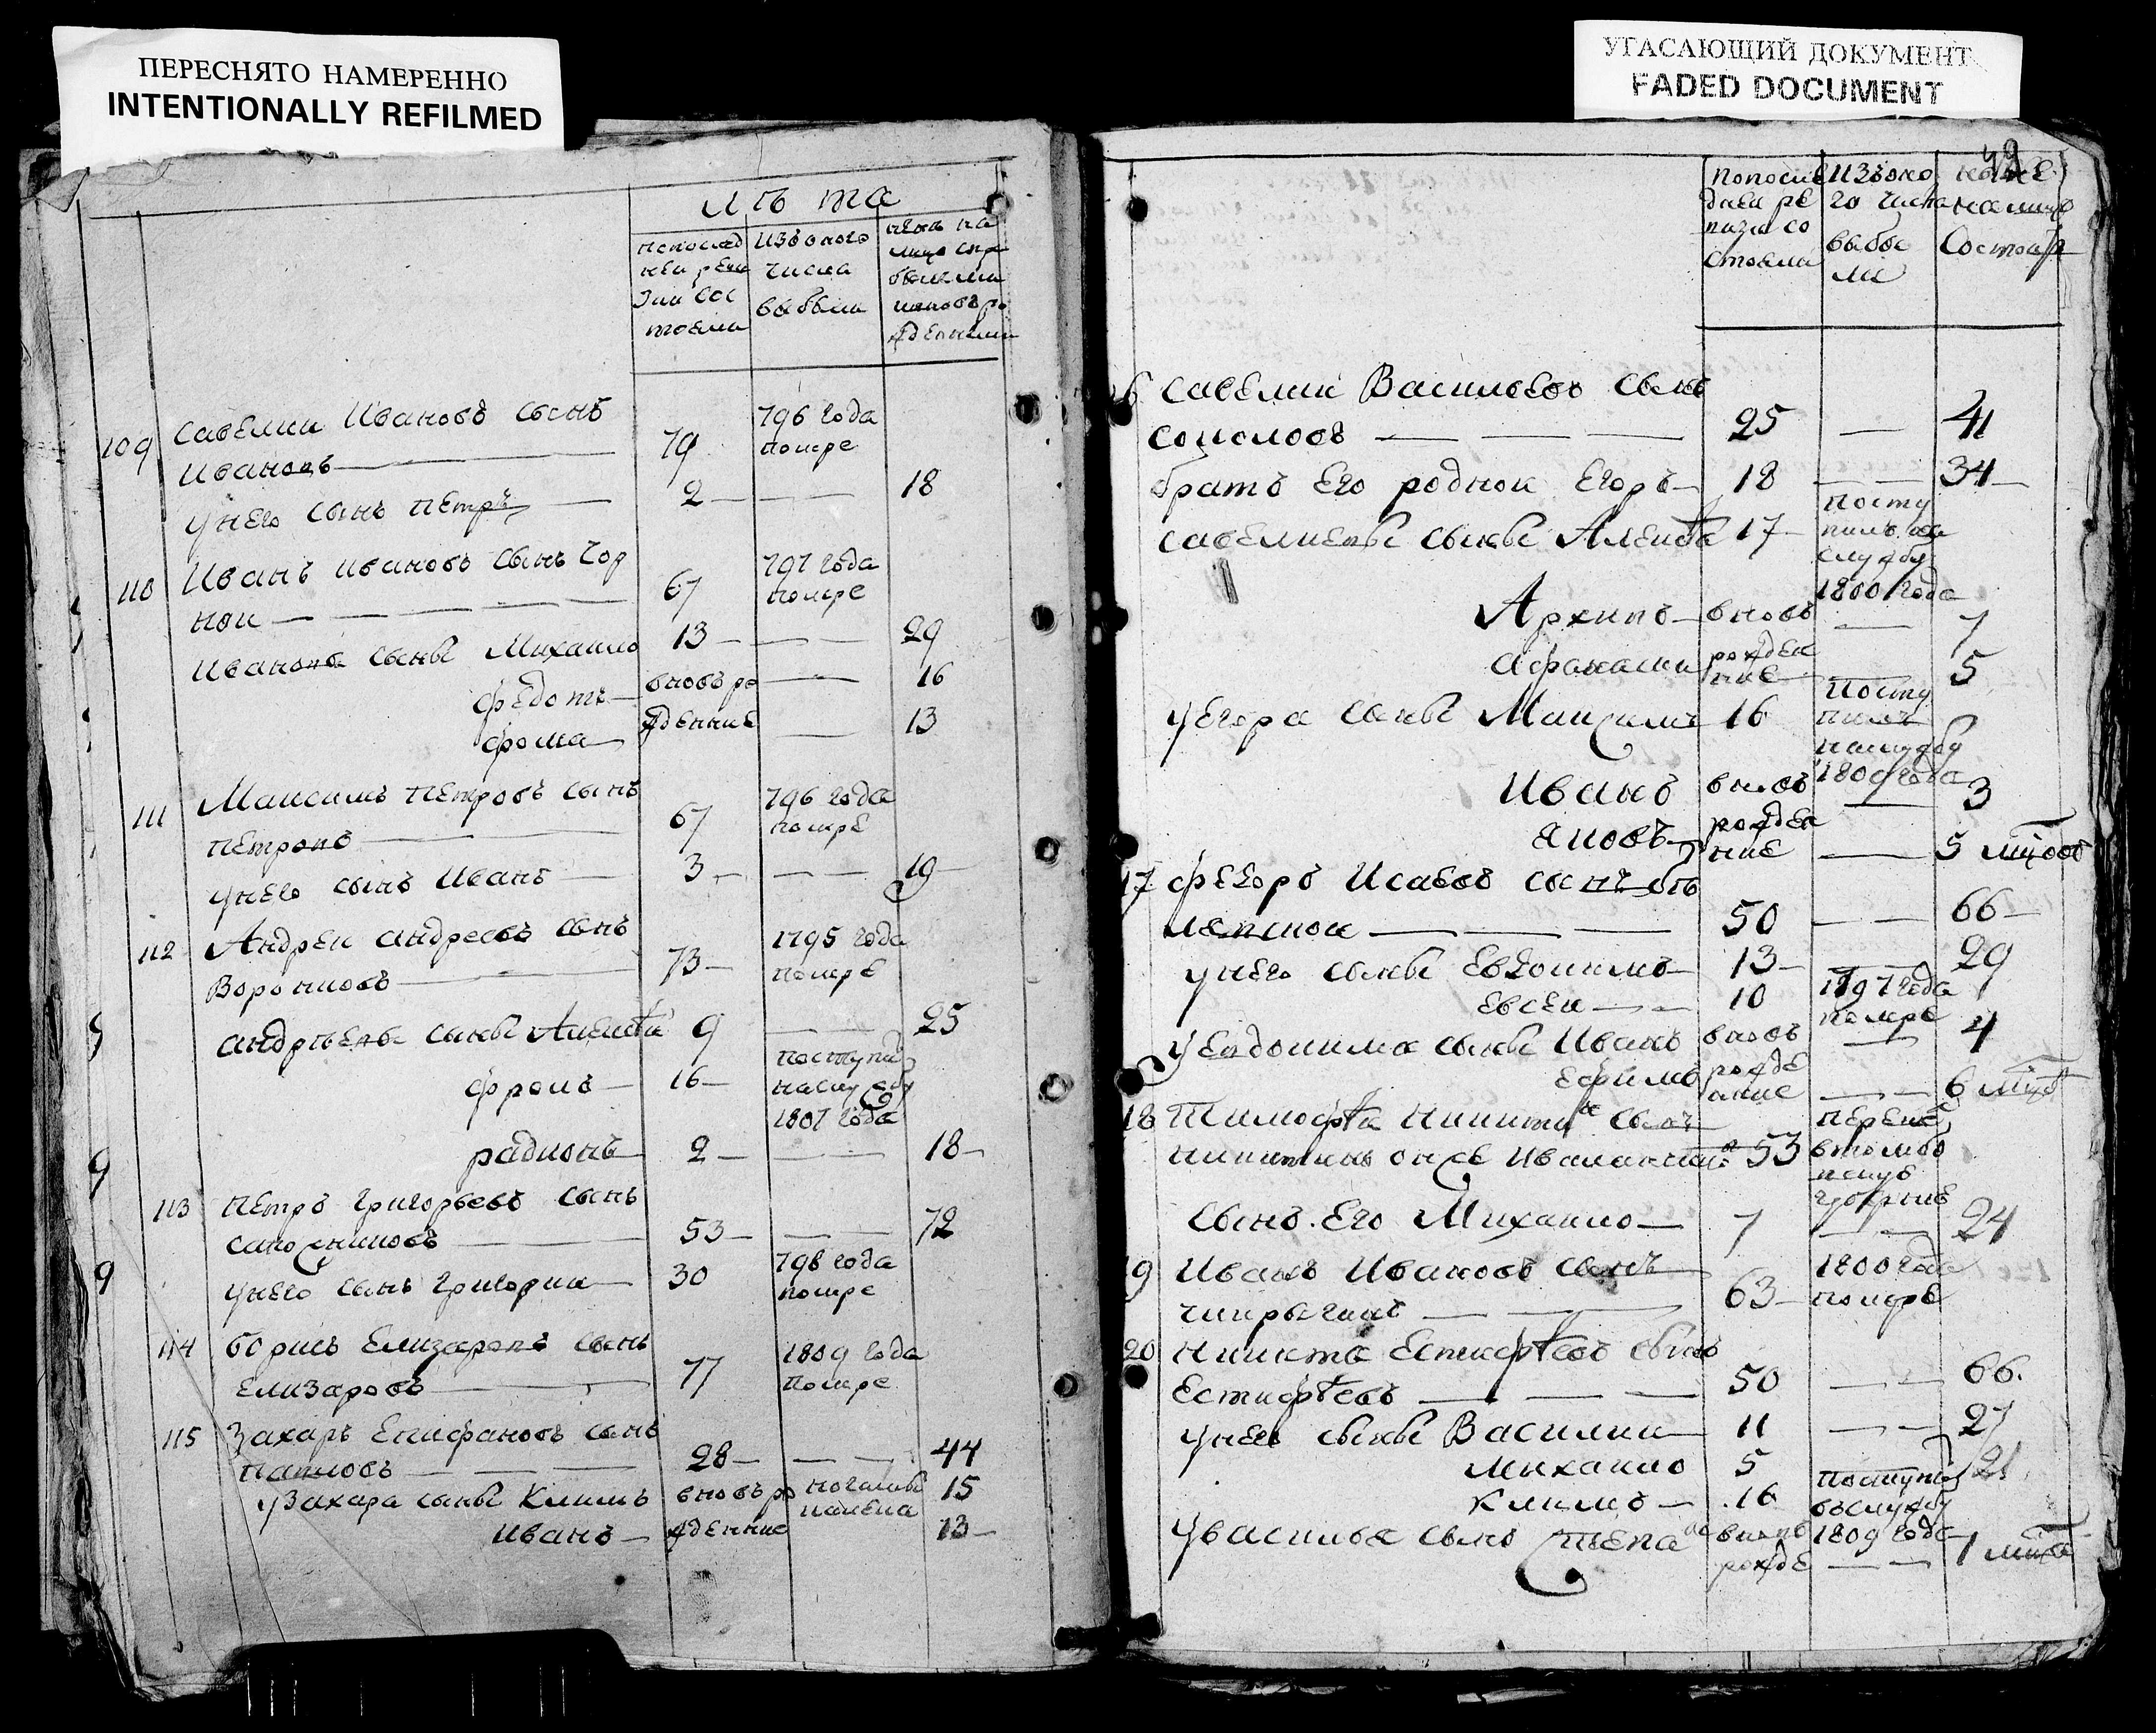 ПЕРЕСНЯТО НАМЕРЕННО
INTENTIONALLY REFILMED
УГАСАЮЩИЙ ДОКУМЕНТ
FADED DOCUMENT
лѣта
попослед
ней реви
зии сос
тояли
изъ оного
числа
выбыли
ныне на
лицо спри
былыми
иновъ ро
жденными
109 Савелии Ивановъ сынъ
Ивановъ 79 796 года
помре
унего сынъ Петръ 2 — — 18
110 Иванъ Ивановъ сынъ Чор
нои 67 797 года
помре
Ивановы сыны Михаило 13 — — 29
Федотъ вновь ро — 16
Фома жденные — 13
111 Максимъ Петровъ сынъ
Петровъ 67 796 года
помре
унего сынъ Иванъ 3 — — 19
112 Андреи Андреевъ сынъ
Вороновъ 73 1795 года
помре
Андрѣевы сыны Алексѣи 9 — — 25
Фролъ 16 поступил
наслужбу
1807 года
радионъ 2 — — 18
113 Петръ Григорьевъ сынъ
Сапожниковъ 53 — — 72
унего сынъ Григории 30 798 года
помре
114 Борисъ Елизаровъ сынъ
Елизаровъ 77 1809 года
помре
115 Захаръ Епифановъ сынъ
Павловъ 28 — — 44
у Захара сыны Климъ вновь ро 15
Иванъ жденные 13
49
попосле
днеи ре
визи со
стояли
изъоно
го числа
выбы
ли
ныне
налицо
состоитъ
16 Савелии Васильевъ сынъ
Соколовъ — — — 25 — 41
братъ Его роднои Егоръ 18 — — 34
Савелиевы сыны Алексѣи 17 посту
пилъ на
службу
1800 года
Архипъ вновь — 7
Афанасии рожден
ные — 5
уЕгора сыны Максимъ 16 посту
пилъ
наслужбу
1809 года
Иванъ вновь — 3
Яковъ рожден
ные — 5 мцовъ
17 Федоръ Исаевъ сынъ
50 — — 66
унего сыны Евдокимъ 13 — 29
Евсеи — — 10 1797 года
помре
уЕвдокима сыны Иванъ вновь — 4
Ефимъ рожде
нные — — 6 мцъ
18 Тимофѣи Никитинъ сынъ
Никитинъ онже 53 переве
втомбо
вскую
губерние
сынъ Его Михаило — 7 — — 24
19 Иванъ Ивановъ сынъ
Чапрыгинъ — — 63 1800 года
помре
20 Никита Естифѣевъ сынъ
Естифѣевъ — — — 50 — — 66.
унего сыны Василии 11 — — 27
Михаило 5 21
Климъ — 16 поступил
вслужбу
1809 года
уВасилья сынъ Степанъ вновь
рожде — — 1 мца